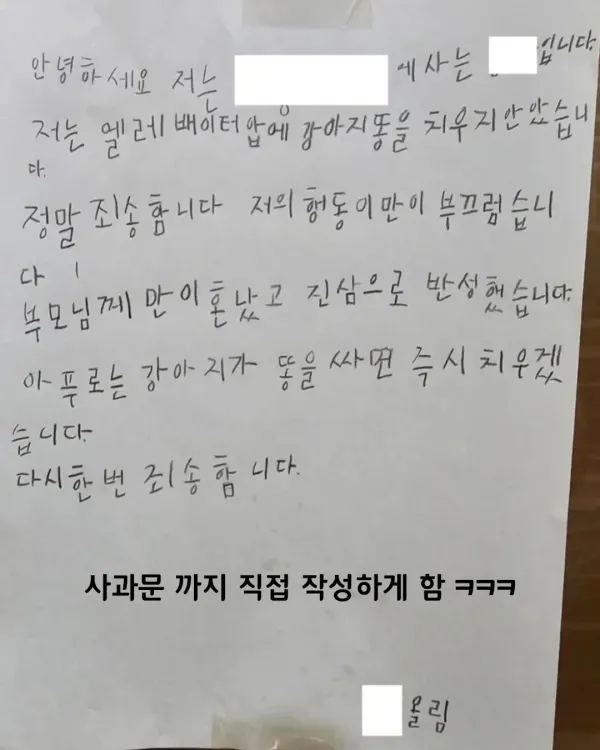 안녕하세요 저는 에사는 입니다.
저는 엘레배이터압에 강아지똥을 치우지안았습니
다.
정말 죄송합니다 저의 행동이만이 부끄럽습니
다
부모님께 만이혼났고 진삼으로 반성했습니다.
아푸로는 강아지가 똥을 싸면 즉시 치우겠
습니다.
다시한번 죄송합니다.
사과문 까지 직접 작성하게 함 ㅋㅋㅋ
올림